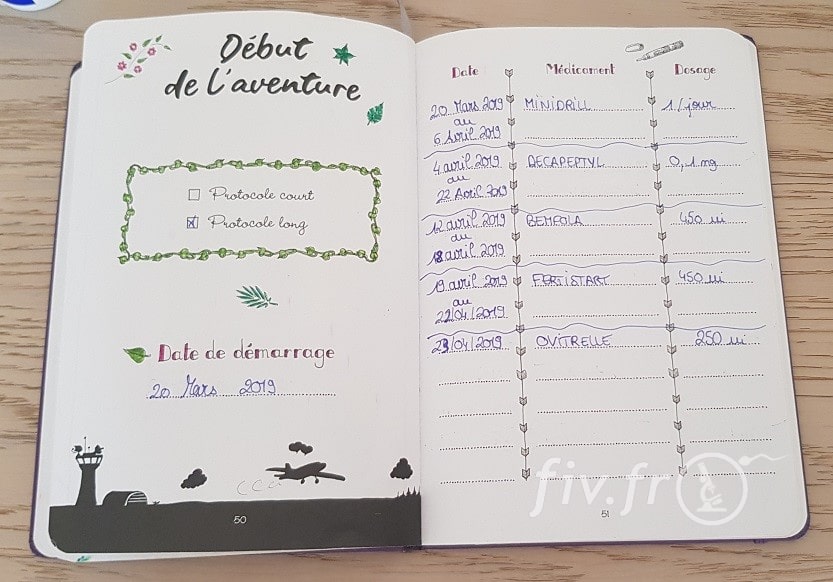 Début
de l'aventure
Protocole court
Protocole long
Date de démarrage
20 Mars 2019
50
Date Médicament Dosage
20 Mars 2019 MINIDRILL 1/jour
au
6 Avril 2019
4 avril 2019 DECAPEPTYL 0,1 mg
au
22 Avril 2019
12 avril 2019 BEMFOLA 450 ui
au
18 avril 2019
19 avril 2019 FERTISTART 450 ui
au
22/04/2019
23/04/2019 OVITRELLE 250 ui
fiv.fr
51